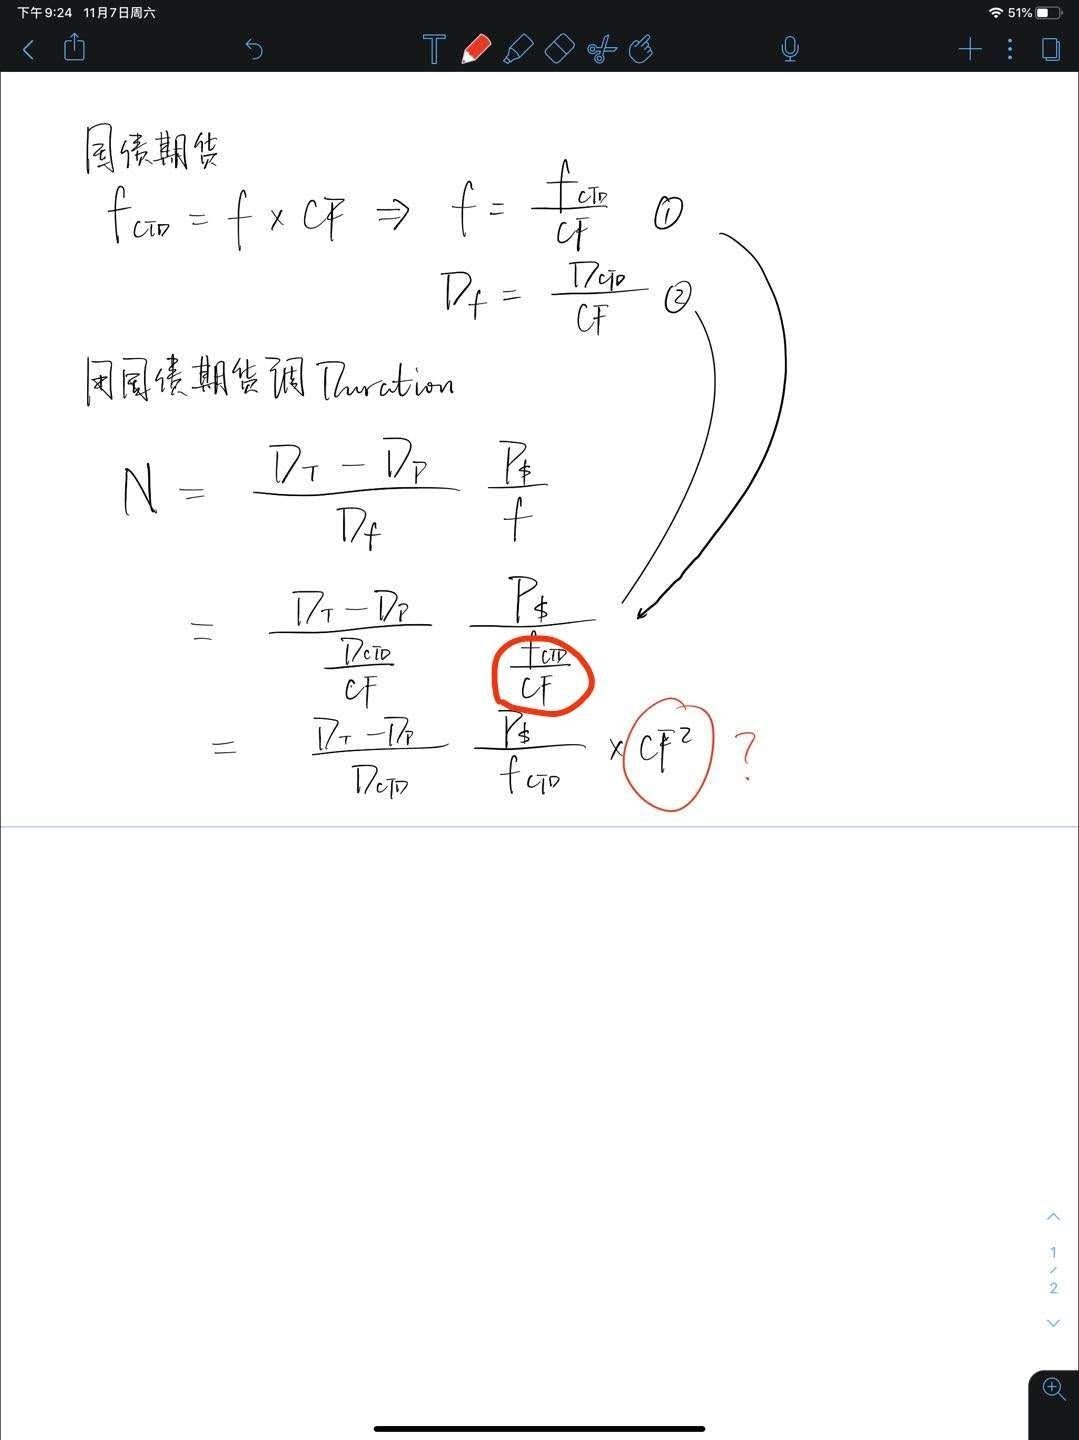 下午9:24 11月7日周六
51%
T
国债期货
f_CTD = f × CF ⇒ f = f_CTD / CF ①
D_f = D_CTD / CF ②
用国债期货调Duration
N = (D_T − D_P) / D_f P_$ / f
= (D_T − D_P) / (D_CTD / CF) P_$ / (f_CTD / CF)
= (D_T − D_P) / D_CTD P_$ / f_CTD × CF² ?
1
/
2